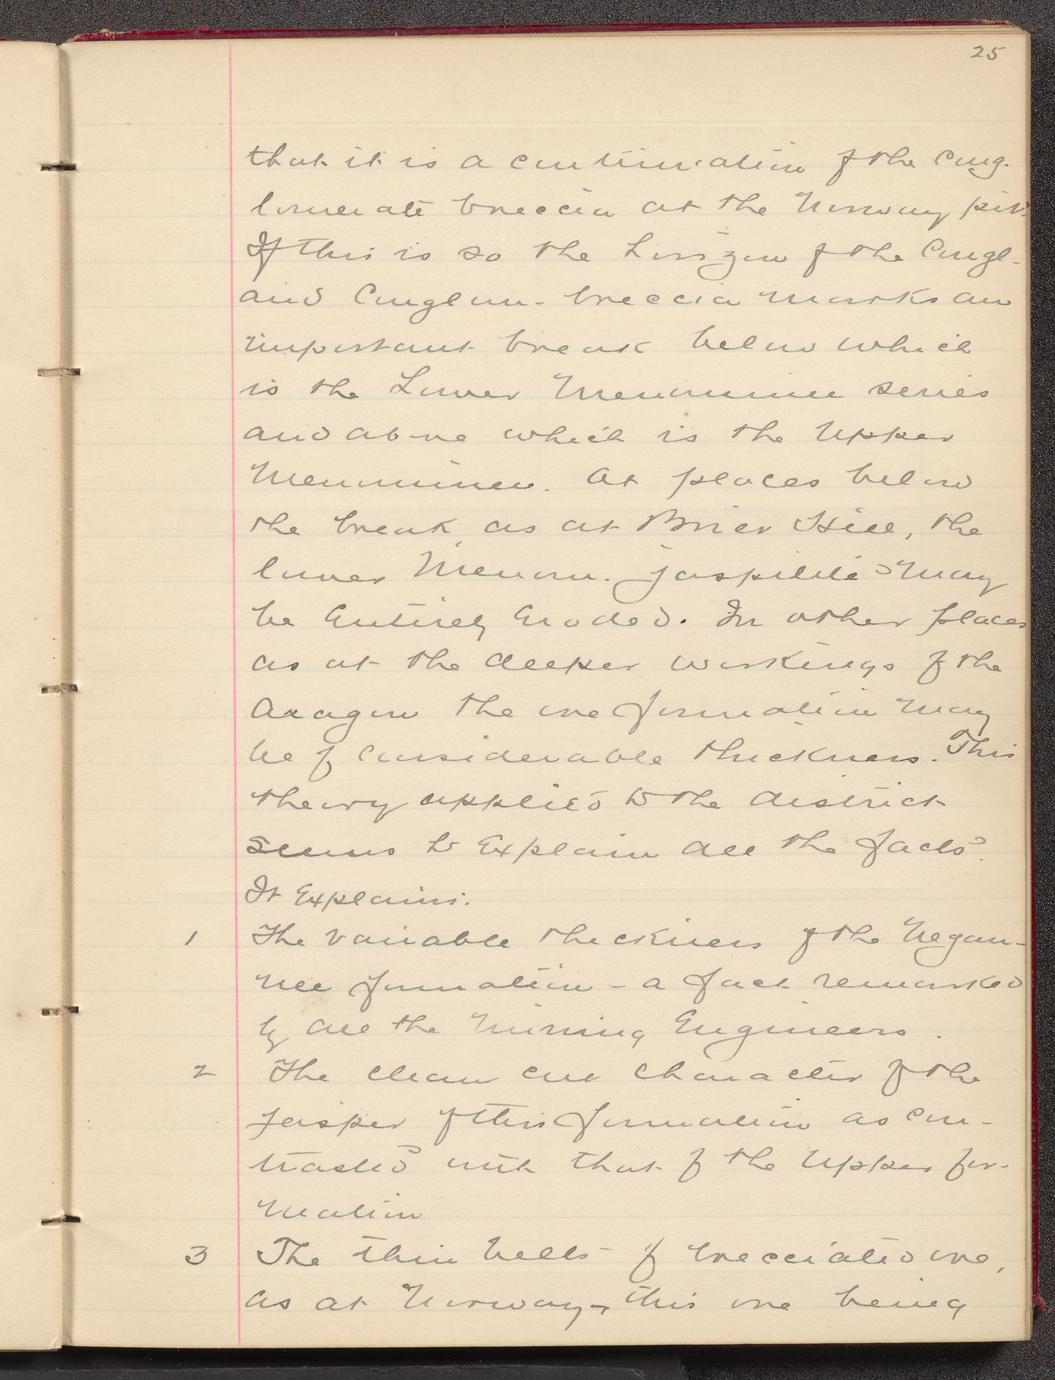 25
that it is a continuation of the Cong-
lomerate breccia at the Norway pit.
If this is so the horizon of the Congl-
and Conglom-breccia marks an
important break below which
is the Lower Menominee series
and above which is the Upper
Menominee. At places below
the break, as at Brier Hill, the
lower Menom. jaspilite may
be entirely eroded. In other places
as at the deeper workings of the
Aragon the ore formation may
be of considerable thickness. This
theory applied to the district
seems to explain all the facts.
It explains.
1 The variable thickness of the Negau-
nee formation - a fact remarked
by all the Mining Engineers.
2 The clean cut character of the
jasper of this formation as con-
trasted with that of the Upper for-
mation
3 The thin belts of brecciated ore,
as at Norway, this ore being